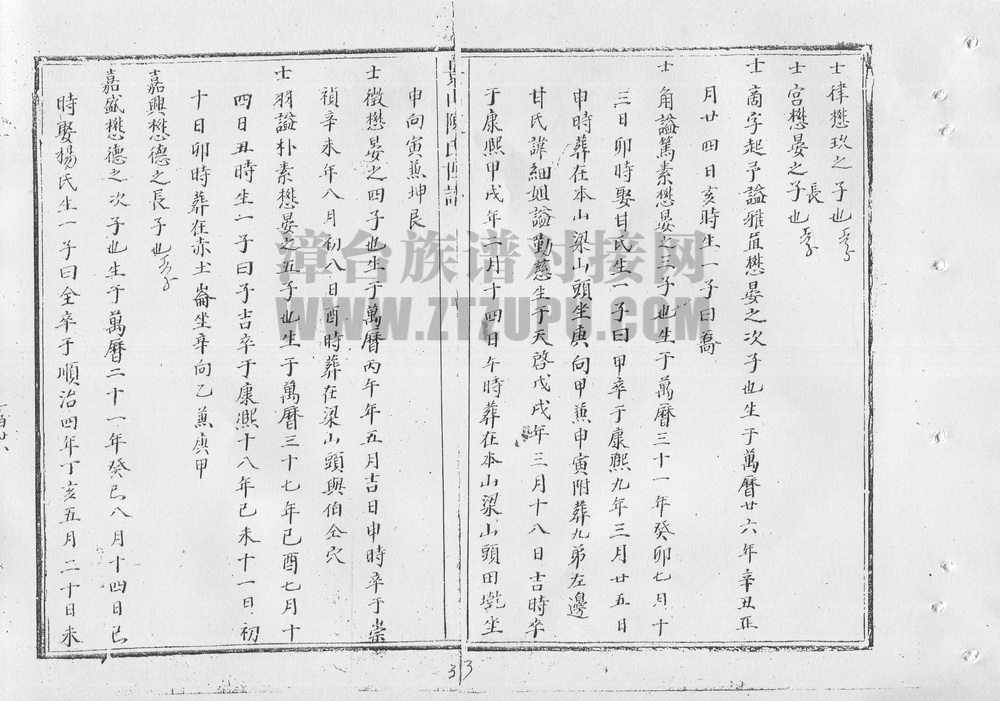 士律懋玖之子也
士宮懋晏之長子也
士商字起予謚雅直懋晏之次子也生于萬曆廿六年辛丑正
月廿四日亥時生一子曰喬
士角謚篤素懋晏之三子也生于萬曆三十一年癸卯七月十
三日卯時娶甘氏生一子曰甲卒于康熙九年三月廿五日
申時葬在本山梁山頭坐庚向甲兼申寅附葬九弟左邊
甘氏諱細姐謚勤慈生于天啓戊戌年三月十八日吉時卒
于康熙甲戌年二月十四日午時葬在本山梁山頭田墘坐
景山陳氏四譜
申向寅兼坤艮
士徵懋晏之四子也生于萬曆丙午年五月吉日申時卒于崇
禎辛未年八月初八日酉時葬在梁山頭與伯仝穴
士羽謚朴素懋晏之五子也生于萬曆三十七年己酉七月十
四日丑時生一子曰子吉卒于康熙十八年己未十一日初
十日卯時葬在赤土崙坐辛向乙兼庚甲
嘉興懋德之長子也
嘉盛懋德之次子也生于萬曆二十一年癸巳八月十四日己
時娶楊氏生一子曰全卒于順治四年丁亥五月二十日未
33
漳台族谱对接网
WWW.ZTZUPU.COM